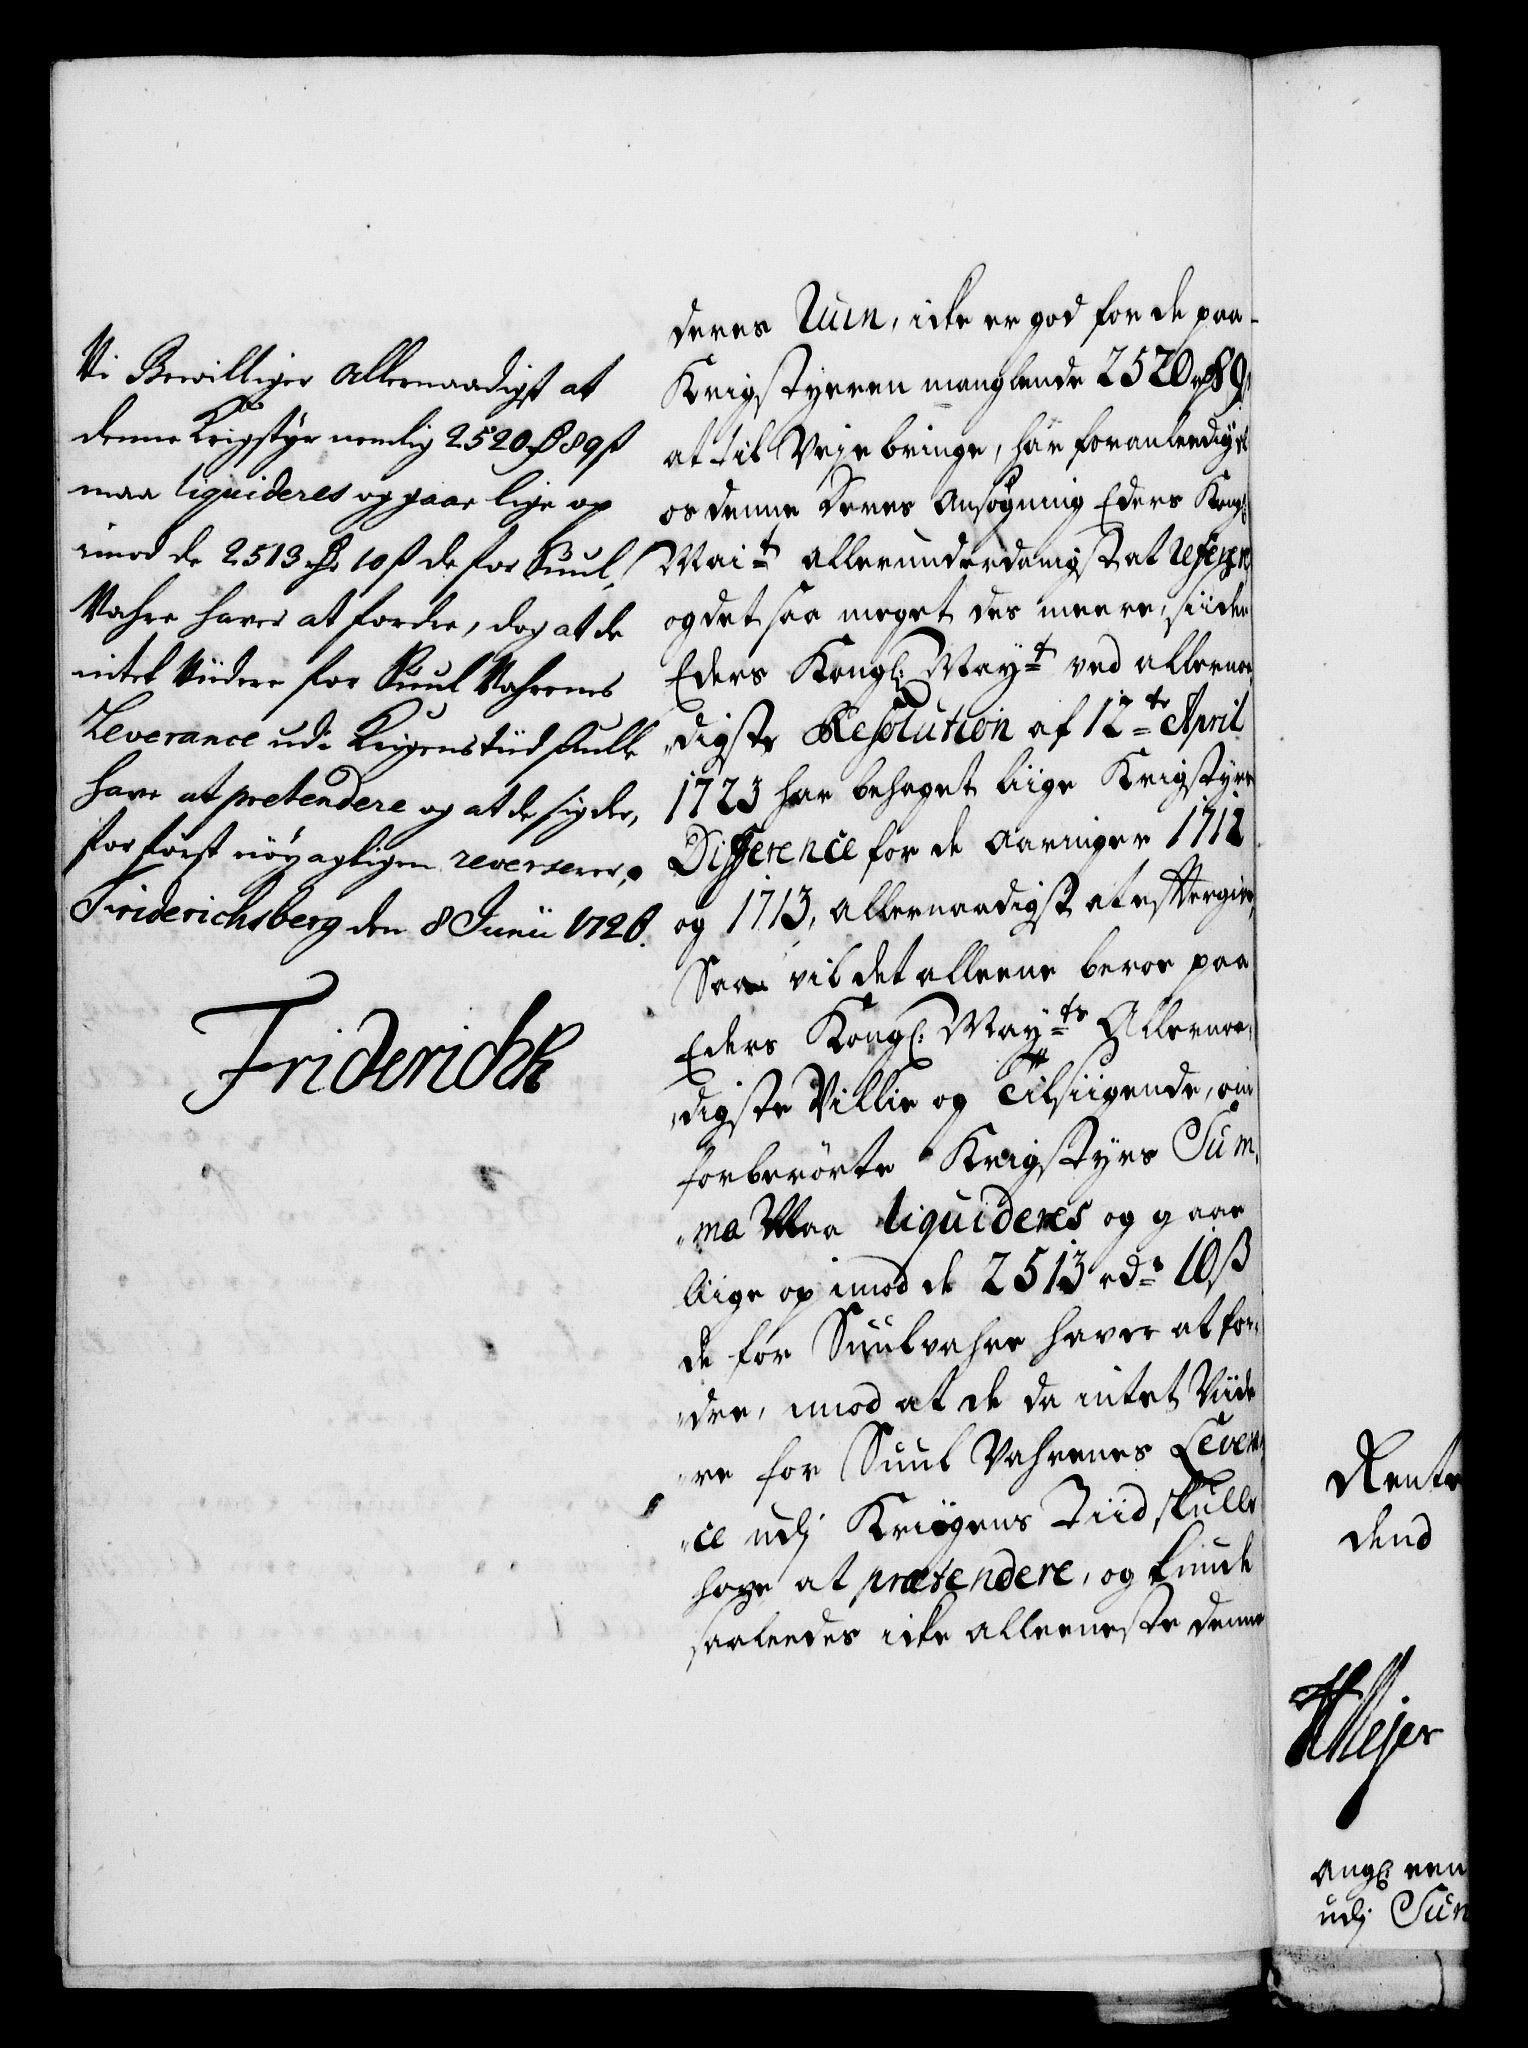 Vi Bevilliger Allernaadigst at
denne Krigstyr nemlig 2520 rd 89 ß
maa liquideres og gaae lige op
imod de 2513 rd 10 ß de for Suul,
Vahre haver at fordre, dog at de
intet Viidere for Suul Vahrenes
Leverance udi Krigens tiid skulle
have at pretendere og at de sig der,
for først nöyagtigen reverserer,
Friderichsberg den 8 Junii 1726.
Friderich R
deres Ruin, icke er god for de paa
Krigstyren manglende 2520 rd 89 ß
at til Veye bringe, har foranleediget
os denne deres Ansögning Eders Kongl:
Mait allerunderdanigst at referere
og det saa meget des meere, siiden
Eders Kongl: Mayt ved allernaa,
„digste Resolution af 12te April
1723 har behaget liige Krigstyrs
Difference for de Aaringer 1712
og 1713, allernaadigst at eftergive,
Saa vil det alleene beroe paa
Eders Kongl: Mayts Allernaa,
„digste Villie og Tilsiigende, om
forberörte Krigstyrs Sum,
„ma Maa liquideres og gaae
liige op imod de 2513 rdr 10 ß
de for Suulvahre haver at for,
„dre, imod at de da intet Viide
„re for Suul Vahrenes Leveran,
„ce udj Kriigens Tiid skulle
have at prætendere, og kunde
saaleedes icke alleeneste denne
Rente
dend
Meyer
Angl: een
udj Sun